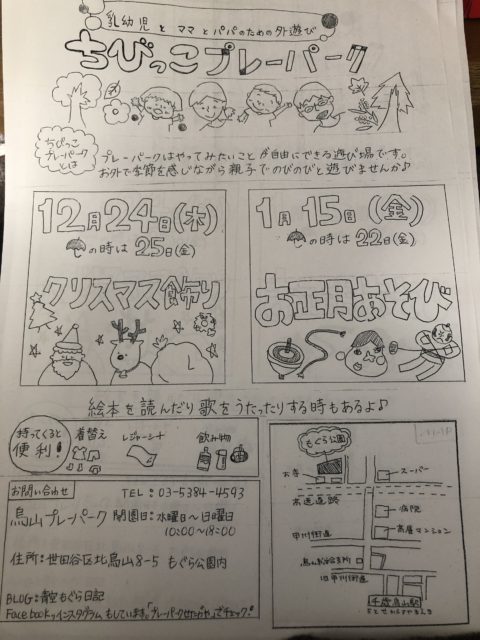 乳幼児とママとパパのための外遊び
ちびっこプレーパーク
ちびっこ
プレーパーク
とは
プレーパークはやってみたいことが自由にできる遊び場です。
お外で季節を感じながら親子でのびのびと遊びませんか♪
12月24日(木)
の時は25日(金)
クリスマス飾り
1月15日(金)
の時は22日(金)
お正月あそび
絵本を読んだり歌をうたったりする時もあるよ♪
持ってくると
便利!
着替え
レジャーシート
飲み物
お問い合わせ
TEL:03-5384-4593
烏山プレーパーク
開園日:水曜日〜日曜日
10:00〜18:00
住所:世田谷区北烏山8-5 もぐら公園内
BLOG:青空もぐら日記
Facebook、インスタグラムもしています。「プレーパークせたがや」でチェック!
もぐら公園
お寺
スーパー
高速道路
病院
甲州街道
高層マンション
旧甲州街道
千歳烏山駅
ちとせからすやまえき